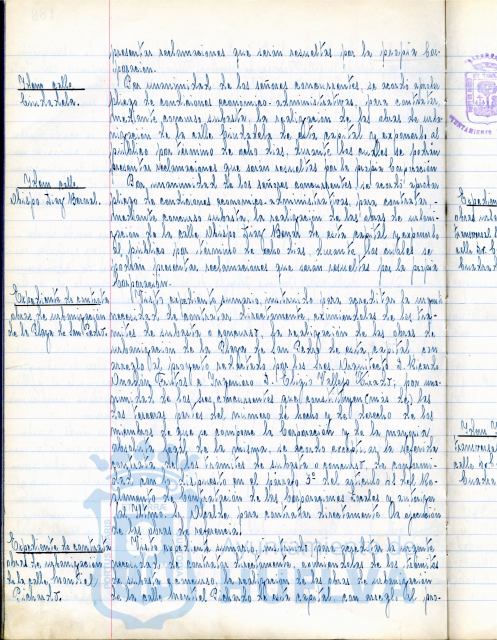 presentar reclamaciones que serán resueltas por la propia Cor-
poración.
Idem calle
Ciudadela.
Por unanimidad de los señores concurrentes, se acordó aprobar
pliego de condiciones económico-administrativas, para contratar,
mediante concurso subasta, la realización de las obras de urba-
nización de la calle Ciudadela de esta capital y exponerlo al
público por término de ocho días, durante los cuales se podrán
presentar reclamaciones que serán resueltas por la propia Corporación.
Idem calle
Obispo Díaz Bernal.
Por unanimidad de los señores concurrentes se acordó aprobar
pliego de condiciones económico-administrativas, para contratar,
mediante concurso subasta, la realización de las obras de urbani-
zación de la calle Obispo Díaz Bernal de esta capital y exponerlo
al público por término de ocho días, durante los cuales se
podrán presentar reclamaciones que serán resueltas por la propia
Corporación.
Expediente de contrata
obras de urbanización
de la Plaza de San Pedro.
Visto expediente sumario, instruido para acreditar la urgente
necesidad de contratar directamente, eximiéndolas de los trá-
mites de subasta o concurso, la realización de las obras de
urbanización de la Plaza de San Pedro de esta capital, con
arreglo al proyecto redactado por los Sres. Arquitecto D. Ricardo
Anadón Frutos e Ingeniero D. Eligio Vallejo, por una-
nimidad de los concurrentes que constituyen más de las
dos terceras partes del número de hecho y de derecho de los
miembros de que se compone la Corporación y de la mayoría
absoluta legal de la misma, se acordó exceptuar la referida
contrata de los trámites de subasta o concurso, de conformi-
dad con lo dispuesto en el párrafo 3º del artículo del Re-
glamento de Contratación de las Corporaciones Locales y autorizar
al Iltmo. Sr. Alcalde para contratar directamente la ejecución
de las obras de referencia.
Expediente de contrata
obras de urbanización
de la calle Montiel
Pichardo.
Visto expediente sumario instruido para acreditar la urgente
necesidad de contratar directamente, eximiéndolas de los trámites
de subasta o concurso, la realización de las obras de urbanización
de la calle Montiel Pichardo de esta capital, con arreglo al pro-